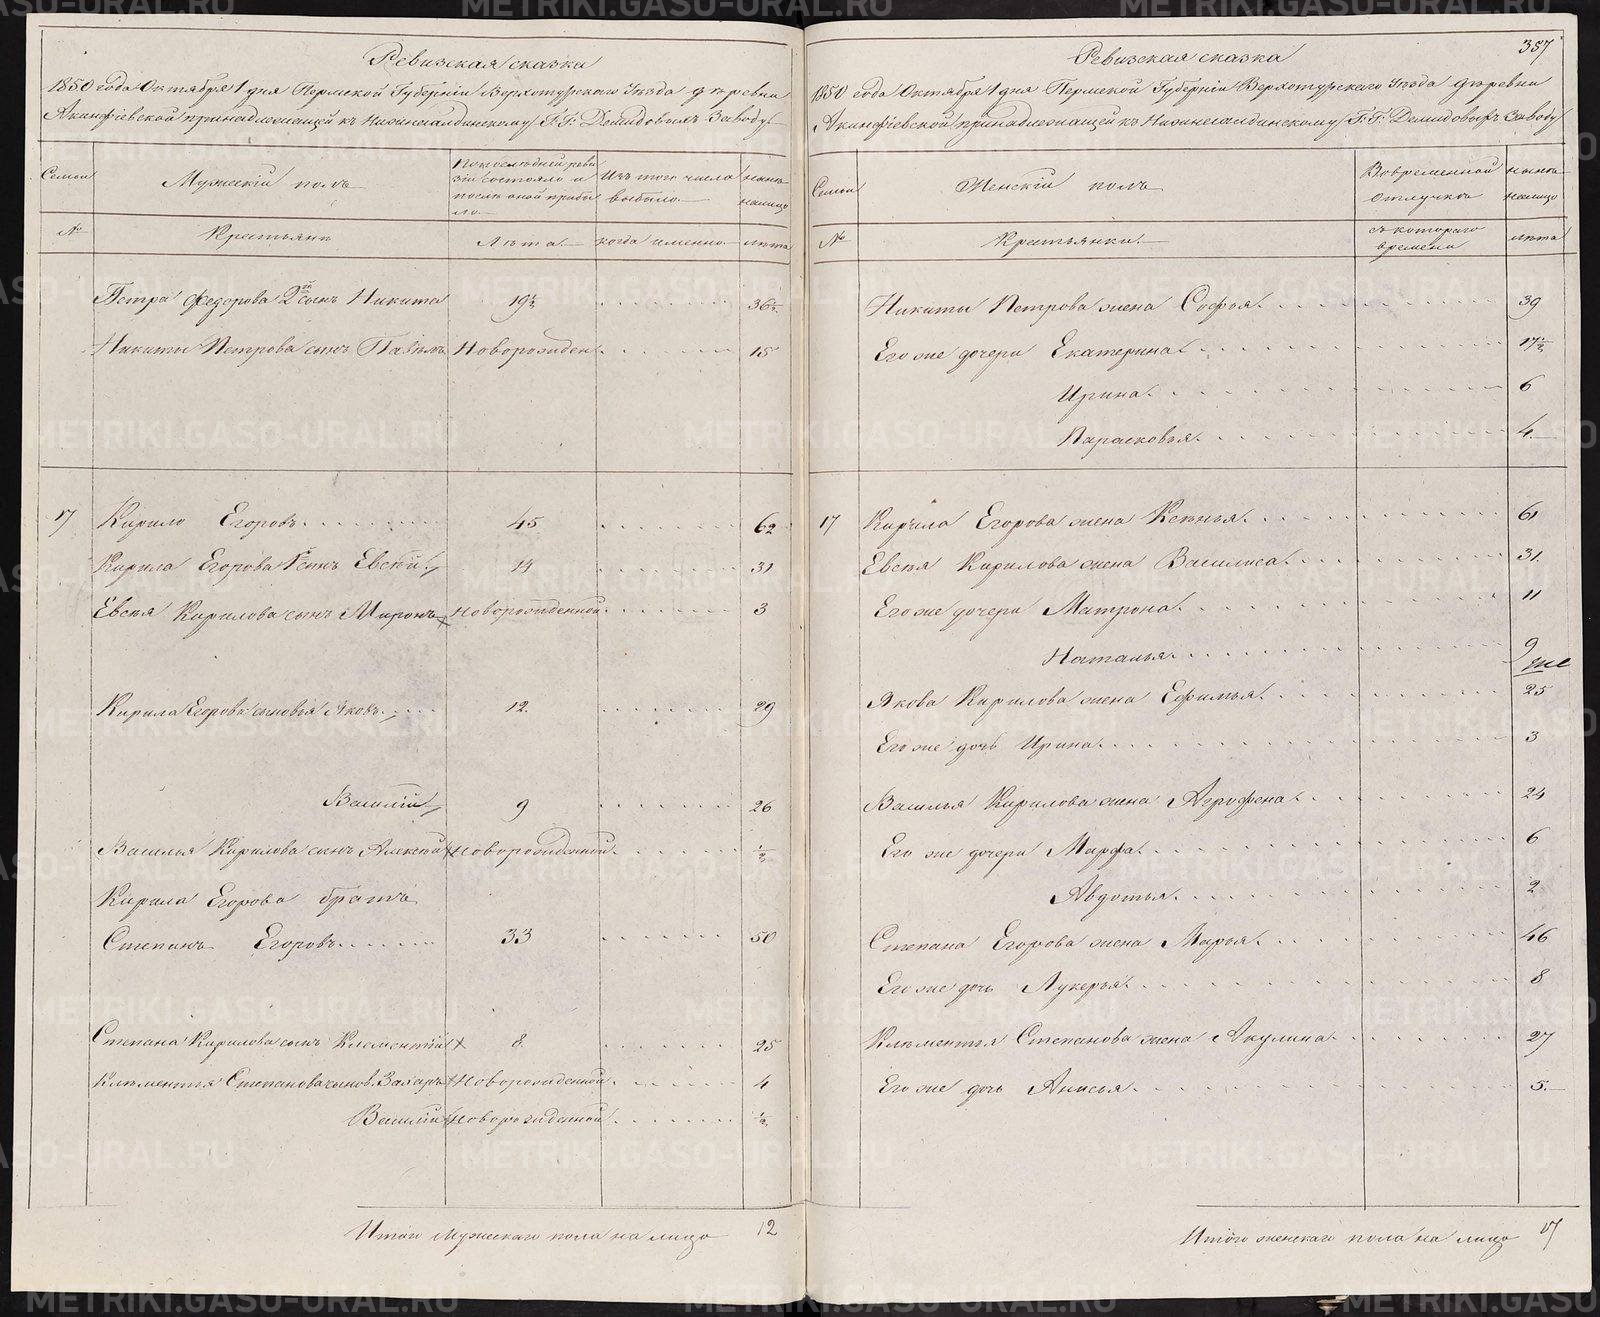 Ревизская сказка
1850 года Октября 1 дня Пермской Губерніи Верхотурскаго Уезда деревни
Акинфіевской принадлежащей къ Нижнесалдинскому Г.Г. Демидовыхъ Заводу
Семьи
Мужескій полъ
По последней реви
зіи состояло и
после оной прибы
ло
Изъ того числа
выбыло
ныне
налицо
№
Крестьяне
Лета
когда именно
лета
Петра Федорова 2й сынъ Никита 19½ 36½
Никиты Петрова сынъ Павелъ Новорожден. 15
17 Кирило Егоровъ 45 62
Кирила Егорова 1й сынъ Евсей 14 31
Евсея Кирилова сынъ Миронъ Новорожденной 3
Кирила Егорова сыновья Яковъ 12 29
Василій 9 26
Василья Кирилова сынъ Алексей Новорожденной ½
Кирила Егорова братъ
Степанъ Егоровъ 33 50
Степана Кирилова сынъ Клементій 8 25
Клементья Степанова сынов. Захаръ Новорожденной 4
Василій Новорожденной ½
Итого Мужескаго пола на лицо 12
357
Ревизская сказка
1850 года Октября 1 дня Пермской Губерніи Верхотурскаго Уезда деревни
Акинфіевской принадлежащей къ Нижнесалдинскому Г.Г. Демидовыхъ Заводу
Семьи
Женскій полъ
Во временной
отлучке
ныне
налицо
№
Крестьянки
съ котораго
времени
лета
Никиты Петрова жена Софья 39
Его же дочери Екатерина 17½
Ирина 6
Парасковья 4
17 Кирила Егорова жена Ксенья 61
Евсея Кирилова жена Василиса 31
Его же дочери Матрона 11
Наталья 9
Якова Кирилова жена Ефимья 25
Его же дочь Ирина 3
Василья Кирилова жена Агрофена 24
Его же дочери Марфа 6
Авдотья 2
Степана Егорова жена Марья 46
Его же дочь Лукерья 8
Клементья Степанова жена Акулина 27
Его же дочь Анисья 5
Итого женскаго пола на лицо 17
METRIKI.GASO-URAL.RU